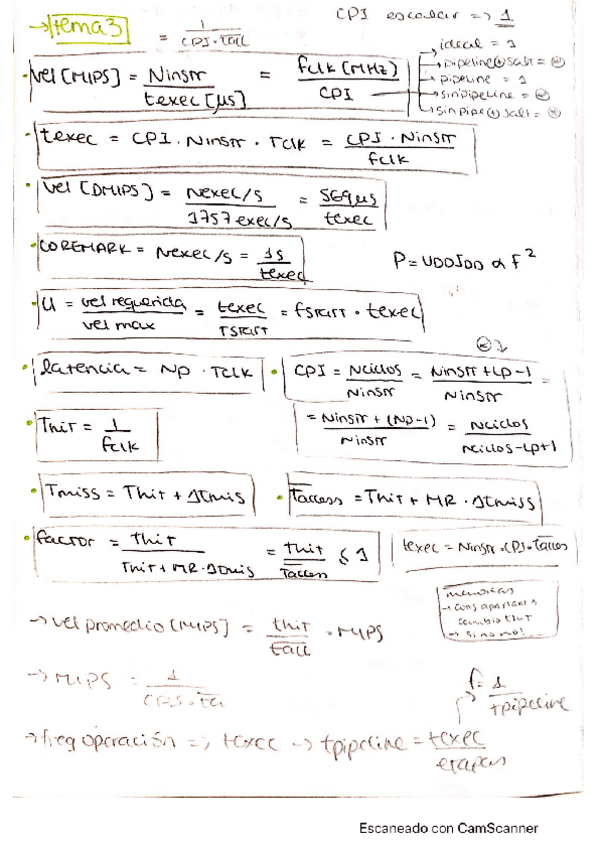 → tema 3
= 1 / CPI · tacc
CPI escalar => 1
· vel [MIPS] = Ninstr / texec [μs] = fclk (MHz) / CPI
ideal = 1
pipeline ⊕ salt = (*)
pipeline = 1
sin pipeline = (*)
sin pipe ⊕ salt = (*)
· texec = CPI · Ninstr · Tclk = CPI · Ninstr / fclk
· vel [DMIPS] = Nexec/s / 1757 exec/s = 569 μs / texec
· COREMARK = Nexec/s = 1s / texec
P = VDD IDD α f²
· U = vel requerida / vel max = texec / Tstart = fstart · texec
(*)
· latencia = Np · Tclk
· CPI = Nciclos / Ninstr = Ninstr + Lp - 1 / Ninstr =
= Ninstr + (Np - 1) / Ninstr = Nciclos / Nciclos - Lp + 1
· Thit = 1 / fclk
· Tmiss = Thit + Δtmis
· Taccess = Thit + MR · Δtmiss
· factor = thit / Thit + MR · Δtmis = thit / Taccess ≤ 1
texec = Ninstr · CPI · Tacces
memorias
→ si no no!
→ vel promedio [MIPS] = thit / tacc · MIPS
→ MIPS = 1 / CPI · tacc
f = 1 / tpipeline
→ freq operación => texec → tpipeline = texec / etapas
Escaneado con CamScanner